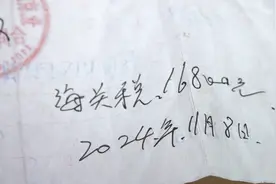 海关税:16800元.
2024年.11月8日.